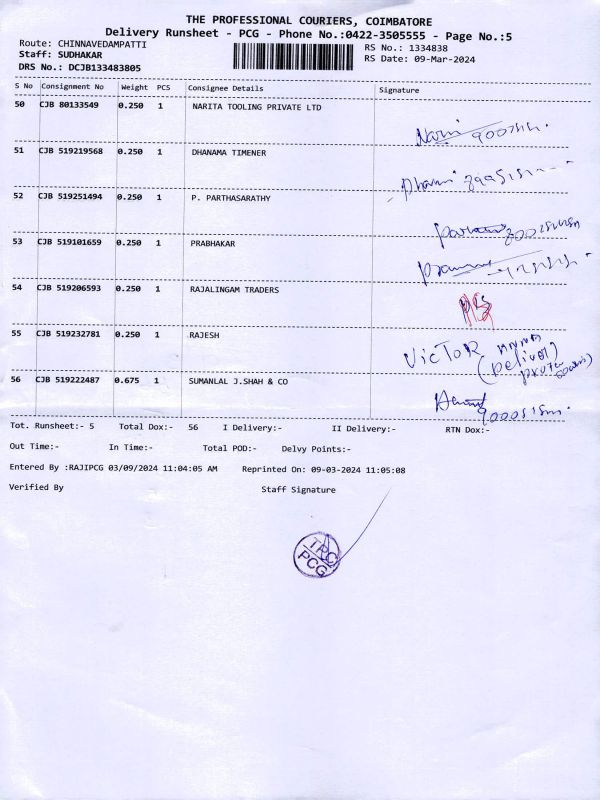 THE PROFESSIONAL COURIERS, COIMBATORE
Delivery Runsheet - PCG - Phone No.:0422-3505555 - Page No.:5
Route: CHINNAVEDAMPATTI
RS No.: 1334838
Staff: SUDHAKAR
RS Date: 09-Mar-2024
DRS No.: DCJB133483805
S No Consignment No Weight PCS Consignee Details Signature
50 CJB 80133549 0.250 1 NARITA TOOLING PRIVATE LTD
51 CJB 519219568 0.250 1 DHANAMA TIMENER
52 CJB 519251494 0.250 1 P. PARTHASARATHY
53 CJB 519101659 0.250 1 PRABHAKAR
54 CJB 519206593 0.250 1 RAJALINGAM TRADERS
55 CJB 519232781 0.250 1 RAJESH
VICTOR
56 CJB 519222487 0.675 1 SUMANLAL J.SHAH & CO
Tot. Runsheet:- 5 Total Dox:- 56 I Delivery:- II Delivery:- RTN Dox:-
Out Time:- In Time:- Total POD:- Delvy Points:-
Entered By :RAJIPCG 03/09/2024 11:04:05 AM Reprinted On: 09-03-2024 11:05:08
Verified By Staff Signature
TPC
PCG